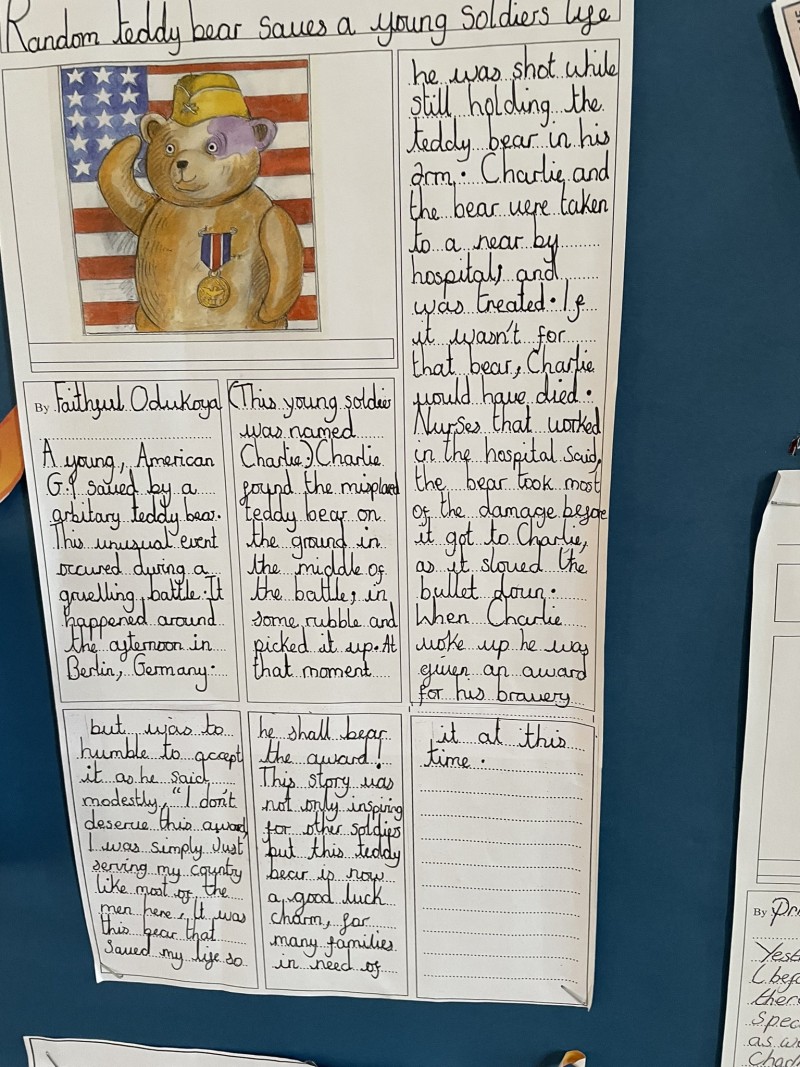 Random teddy bear saves a young soldiers life
By Faithful Odukoya
A young, American
G.I saved by a
arbitary teddy bear.
This unusual event
occured during a
gruelling battle. It
happened around
the afternoon in
Berlin, Germany.
(This young soldier
was named
Charlie.) Charlie
found the misplaced
teddy bear on
the ground in
the middle of
the battle, in
some rubble and
picked it up. At
that moment
he was shot while
still holding the
teddy bear in his
arm. Charlie and
the bear were taken
to a near by
hospital, and
was treated. If
it wasn't for
that bear, Charlie
would have died.
Nurses that worked
in the hospital said,
the bear took most
of the damage before
it got to Charlie,
as it slowed the
bullet down.
When Charlie
woke up he was
given an award
for his bravery
but was to
humble to accept
it as he said
modestly, "I don't
deserve this award,
I was simply Just
serving my country
like most of the
men here, It was
this bear that
saved my life so
he shall bear
the award!
This story was
not only inspiring
for other soldiers
but this teddy
bear is now
a good luck
charm, for
many families
in need of
it at this
time.
By Pri
Yest
(bef
ther
spec
as w
Charl